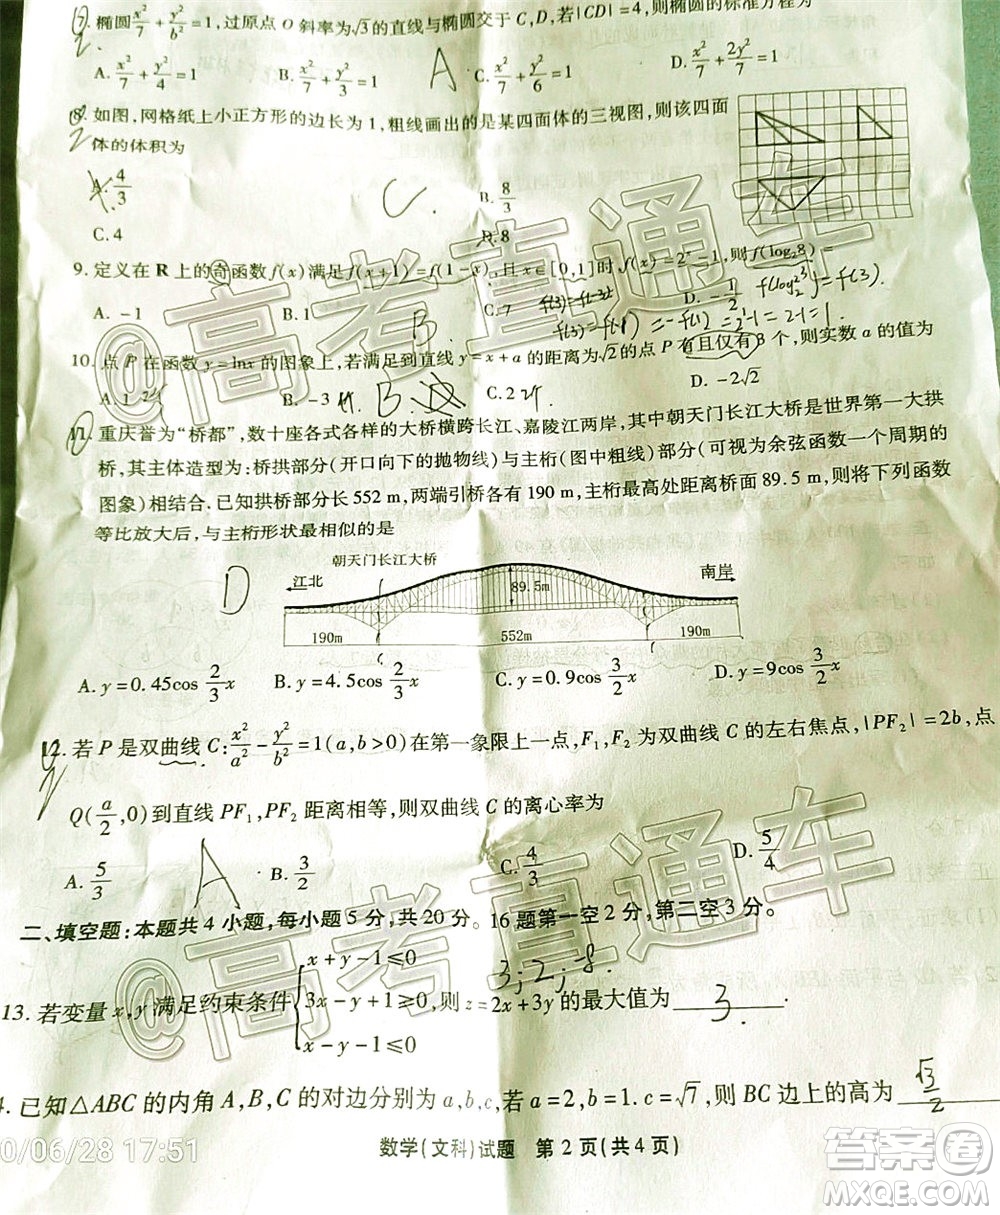 7. 椭圆x²/7+y²/b²=1,过原点O斜率为√3的直线与椭圆交于C,D,若|CD|=4,则椭圆的标准方程为
A. x²/7+y²/4=1 B. x²/7+y²/3=1 A C. x²/7+y²/6=1 D. x²/7+2y²/7=1
8. 如图,网格纸上小正方形的边长为1,粗线画出的是某四面体的三视图,则该四面
体的体积为
A. 4/3 C B. 8/3
C. 4 D. 8
9. 定义在R上的奇函数f(x)满足f(x+1)=f(1-x),且x∈[0,1]时,f(x)=2ˣ-1,则f(log₂8)=
A. -1 B. 1 C. 7 D. -1/2 f(log₂2³)=f(3)
B f(3)=f(-1)=-f(1)=2-1=2-1=1
10. 点P在函数y=lnx的图象上,若满足到直线y=x+a的距离为√2的点P有且仅有3个,则实数a的值为
A. 1 2个 B. -3 B C. 2 2个 D. -2√2
重庆誉为“桥都”,数十座各式各样的大桥横跨长江、嘉陵江两岸,其中朝天门长江大桥是世界第一大拱
桥,其主体造型为:桥拱部分(开口向下的抛物线)与主桁(图中粗线)部分(可视为余弦函数一个周期的
图象)相结合.已知拱桥部分长552m,两端引桥各有190m,主桁最高处距离桥面89.5m,则将下列函数
等比放大后,与主桁形状最相似的是
朝天门长江大桥
江北 南岸
D
89.5m
190m 552m 190m
A. y=0.45cos 2/3 x B. y=4.5cos 2/3 x C. y=0.9cos 3/2 x D. y=9cos 3/2 x
12. 若P是双曲线C:x²/a²-y²/b²=1(a,b>0)在第一象限上一点,F₁,F₂为双曲线C的左右焦点,|PF₂|=2b,点
Q(a/2,0)到直线PF₁,PF₂距离相等,则双曲线C的离心率为
A. 5/3 A B. 3/2 C. 4/3 D. 5/4
二、填空题:本题共4小题,每小题5分,共20分。16题第一空2分,第二空3分。
3; 2; -8.
13. 若变量x,y满足约束条件{x+y-1≤0 3x-y+1≥0 x-y-1≤0,则z=2x+3y的最大值为 3 .
4. 已知△ABC的内角A,B,C的对边分别为a,b,c,若a=2,b=1.c=√7,则BC边上的高为 √3/2
数学(文科)试题 第2页(共4页)
0/06/28 17:51
@高考直通车
@高考直通车
@高考直通车
答案圈
MXQE.COM